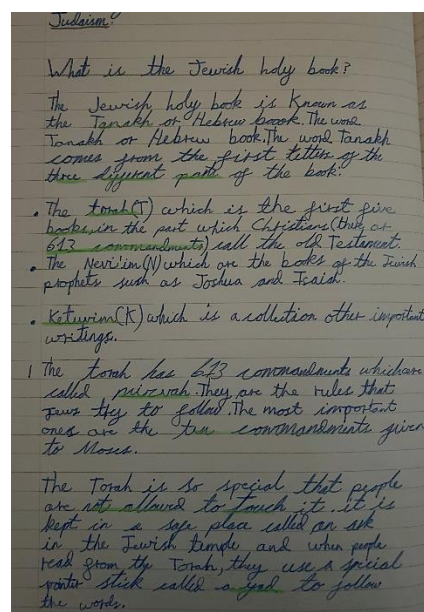 Judaism!
What is the Jewish holy book?
The Jewish holy book is known as
the Tanakh or Hebrew boook. The word
Tanakh or Hebrew book. The word Tanakh
comes from the first letters of the
three different part of the book:
• The torah(T) which is the first five
books, in the part which Christians (they or
613 commandments) call the old Testament.
• The Nevi'im(N) which are the books of the Jewish
prophets such as Joshua and Isaiah.
• Ketuvim(K) which is a collection other important
writings.
1 The torah has 613 commandments which are
called mitzvah. They are the rules that
Jews try to follow. The most important
ones are the ten commandments given
to Moses.
The Torah is so special that people
are not allowed to touch it. it is
kept in a safe place called an ark
in the Jewish temple and when people
read from the Torah, they use a special
pointer stick called a yad to follow
the words.